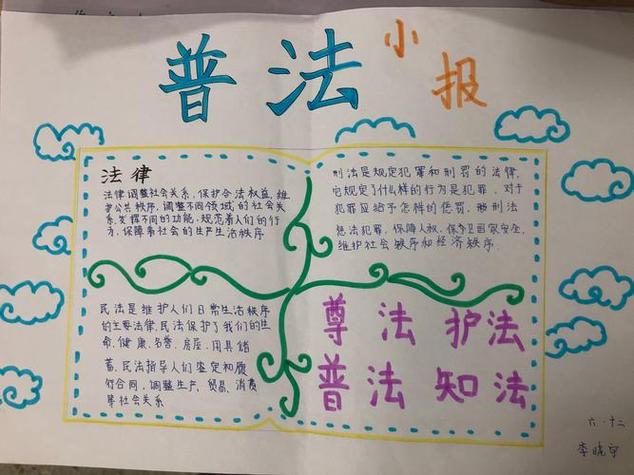 普法
小报
法律
法律调整社会关系,保护合法权益,维
护公共秩序,调整不同领域的社会关
系,发挥不同的功能,规范着人们的行
为,保障着社会的生产生活秩序
刑法是规定犯罪和刑罚的法律,
它规定了什么样的行为是犯罪,对于
犯罪应给予怎样的惩罚,
惩治犯罪,保障人权,保卫国家安全,
维护社会秩序和经济秩序.
民法是维护人们日常生活秩序
的主要法律,民法保护了我们的生
命、健康、名誉、房屋、用具储
蓄、民法指导人们签定和履
行合同,调整生产、贸易、消费
等社会关系
尊法 护法
普法 知法
六·十二
李晓宇